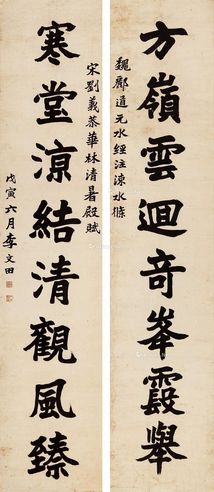 方嶺雲迴奇峯霞舉
魏酈道元水經注涑水條
宋劉義恭華林清暑殿賦
寒堂涼結清觀風臻
戊寅六月李文田